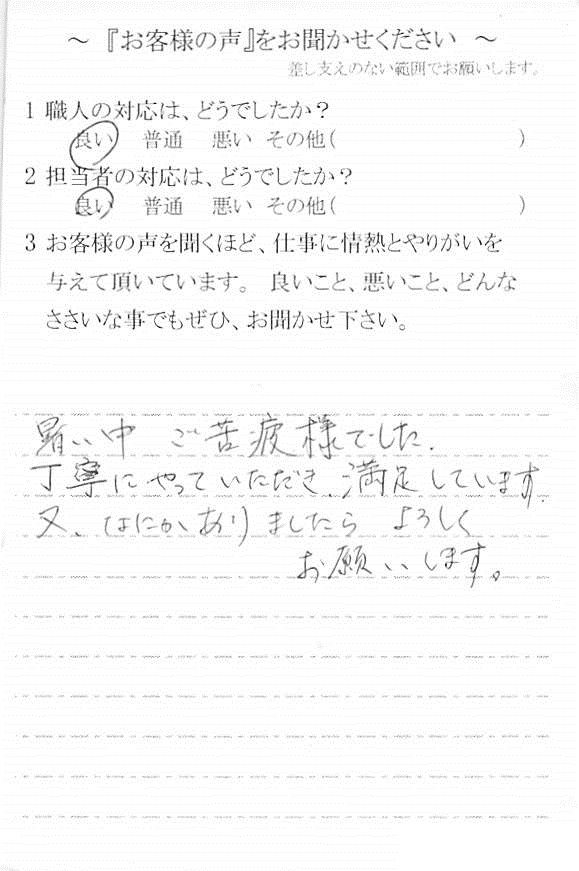 ～『お客様の声』をお聞かせください ～
差し支えのない範囲でお願いします。
1 職人の対応は、どうでしたか？
良い 普通 悪い その他( )
2 担当者の対応は、どうでしたか？
良い 普通 悪い その他( )
3 お客様の声を聞くほど、仕事に情熱とやりがいを
与えて頂いています。 良いこと、悪いこと、どんな
ささいな事でもぜひ、お聞かせ下さい。
暑い中 ご苦疲様でした.
丁寧にやっていただき、満足しています.
又、なにかありましたら よろしく
お願いします。